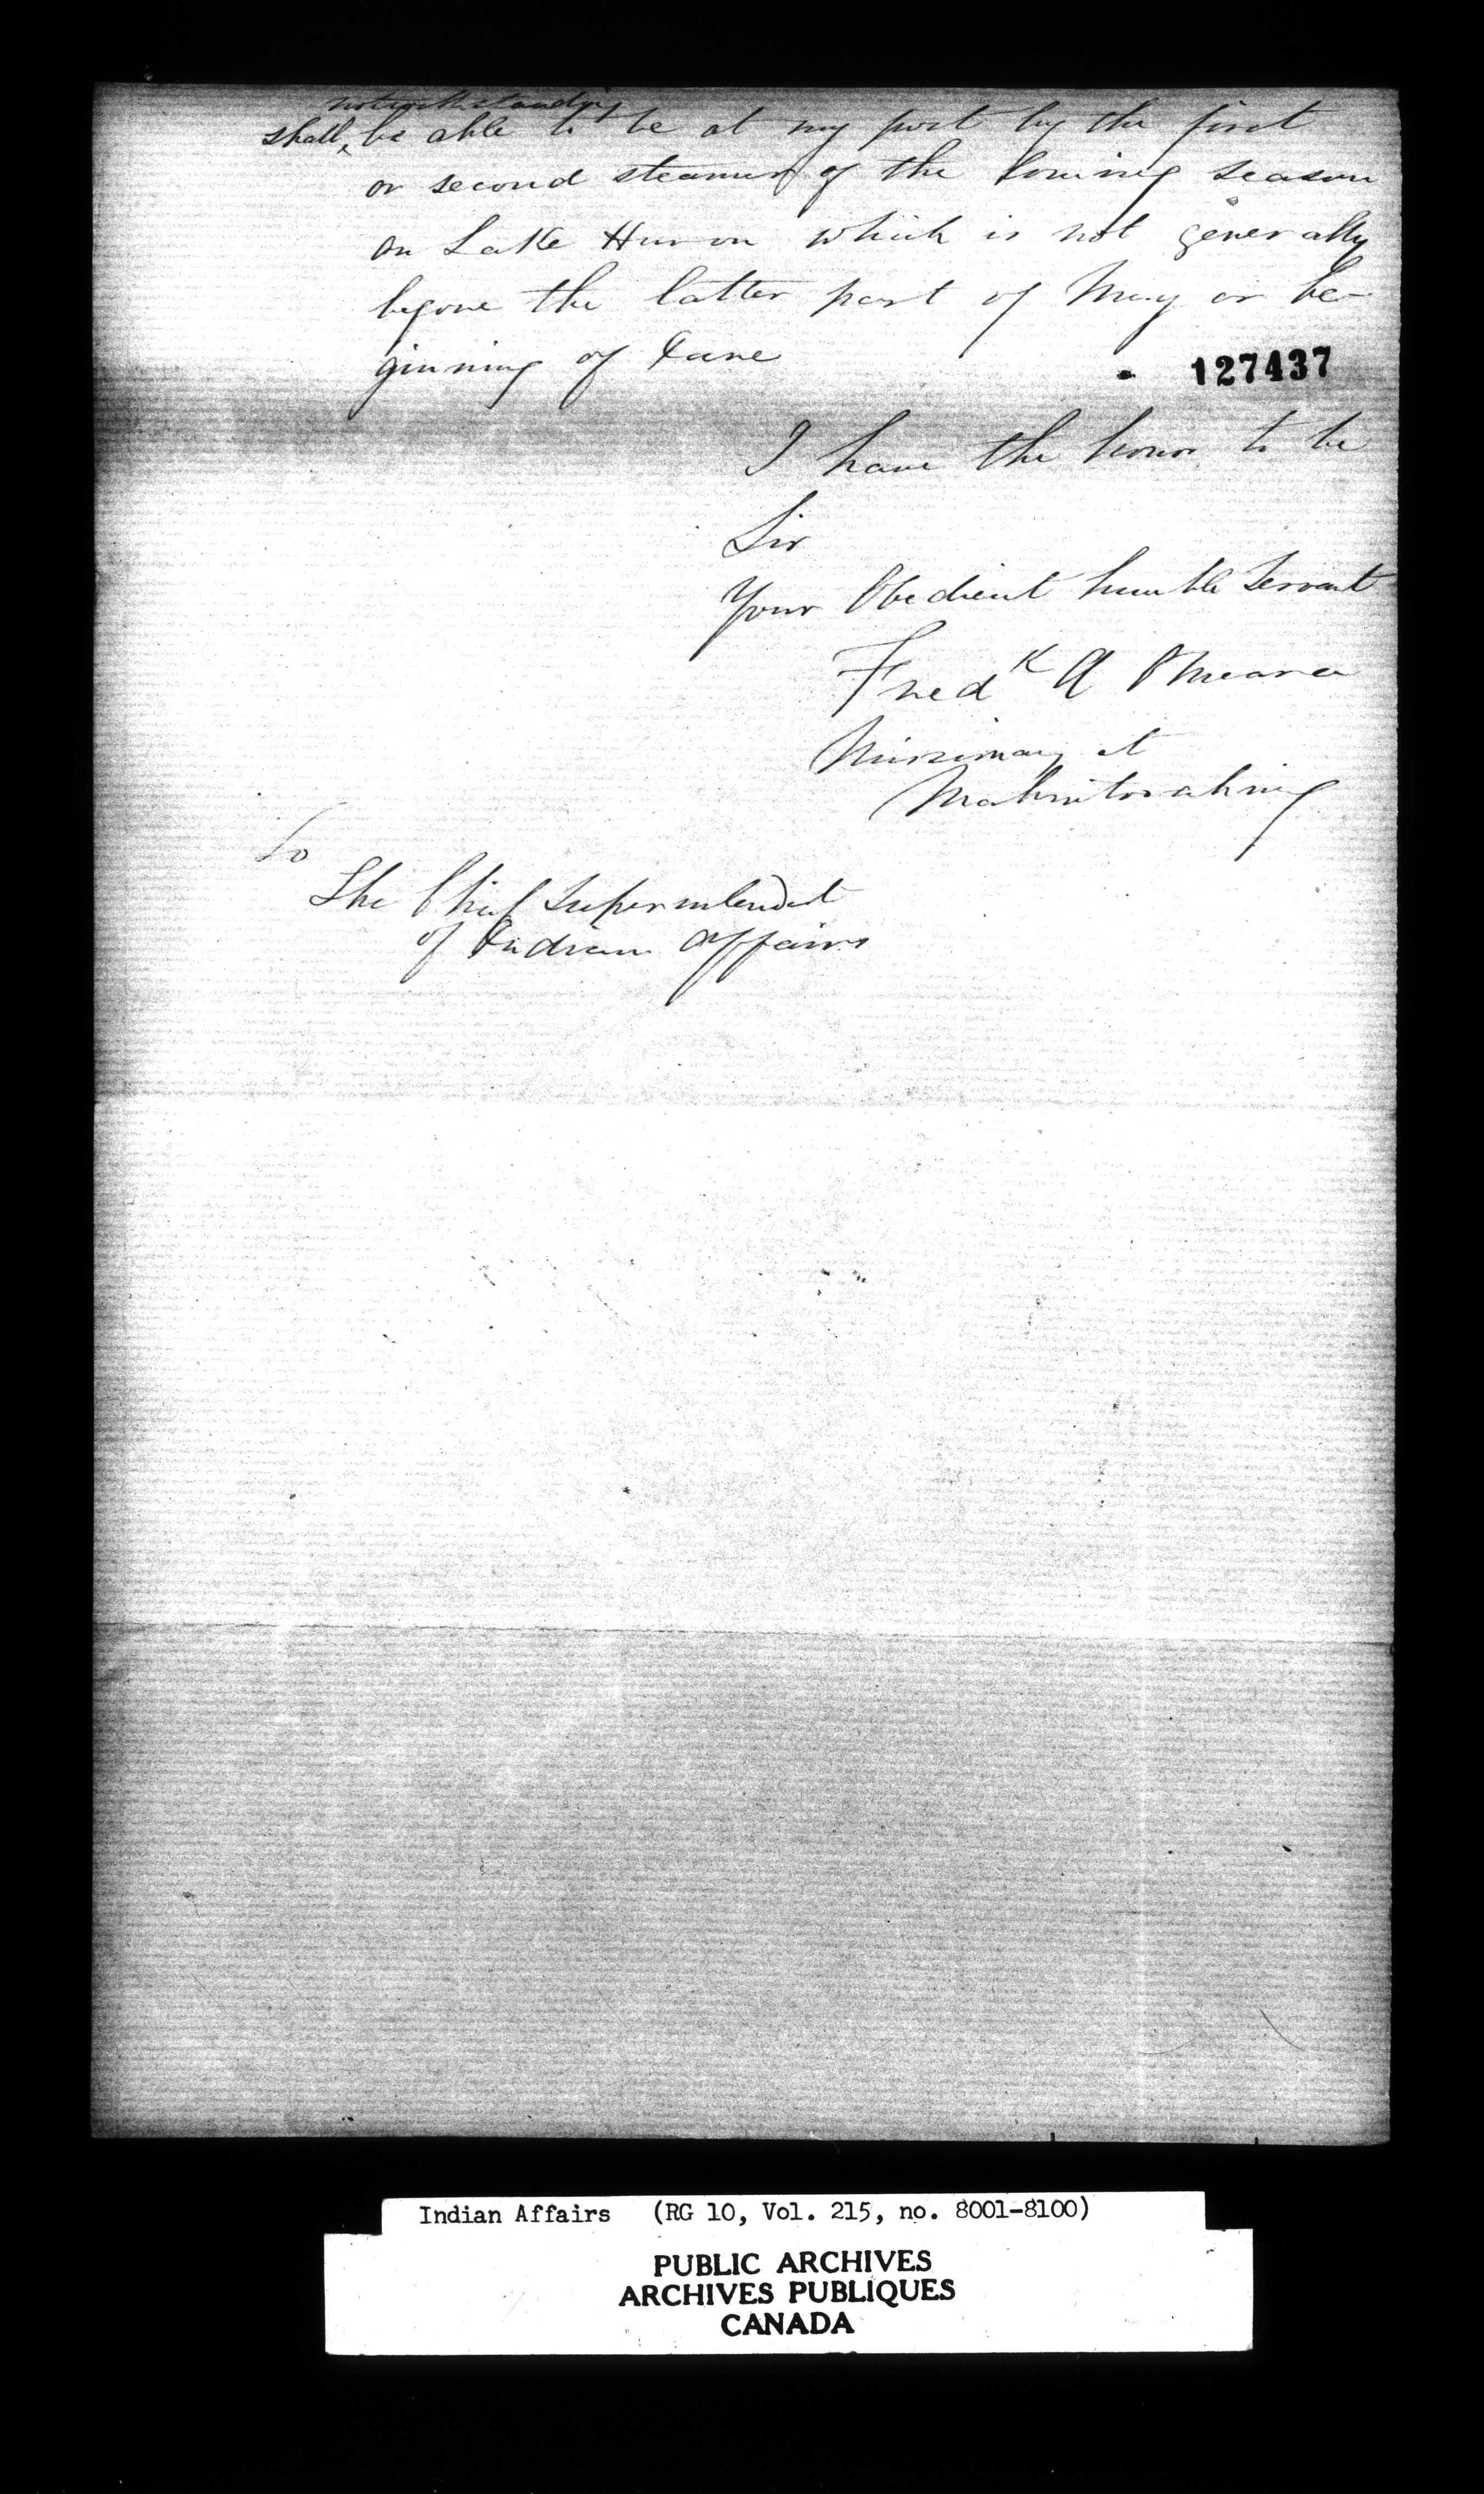 notwithstanding
shall, be able to be at my post by the first
or second steamer of the coming season
on Lake Huron which is not generally
before the latter part of May or be-
ginning of June
127437
I have the honor to be
Sir
Your Obedient humble Servant
Fredk A OMeara
Missionary at
Mahnitooahning
To
The Chief Superintendent
of Indian Affairs
Indian Affairs (RG 10, Vol. 215, no. 8001-8100)
PUBLIC ARCHIVES
ARCHIVES PUBLIQUES
CANADA